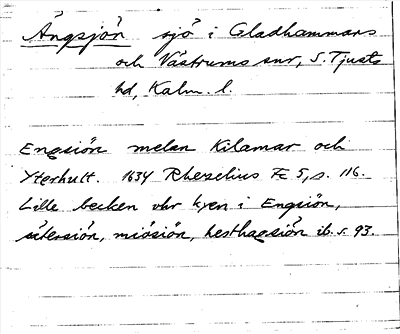 Ängsjön sjö i Gladhammars
och Västrums snr, S. Tjusts
hd, Kalm. l.
Engsiön melan Kilamar och
Yterhult. 1634 Rhezelius F c 5, s. 116.
Lille becken uhr kyen i Engsiön,
sätersiön, miösiön, hesthagsiön ib. s. 93.